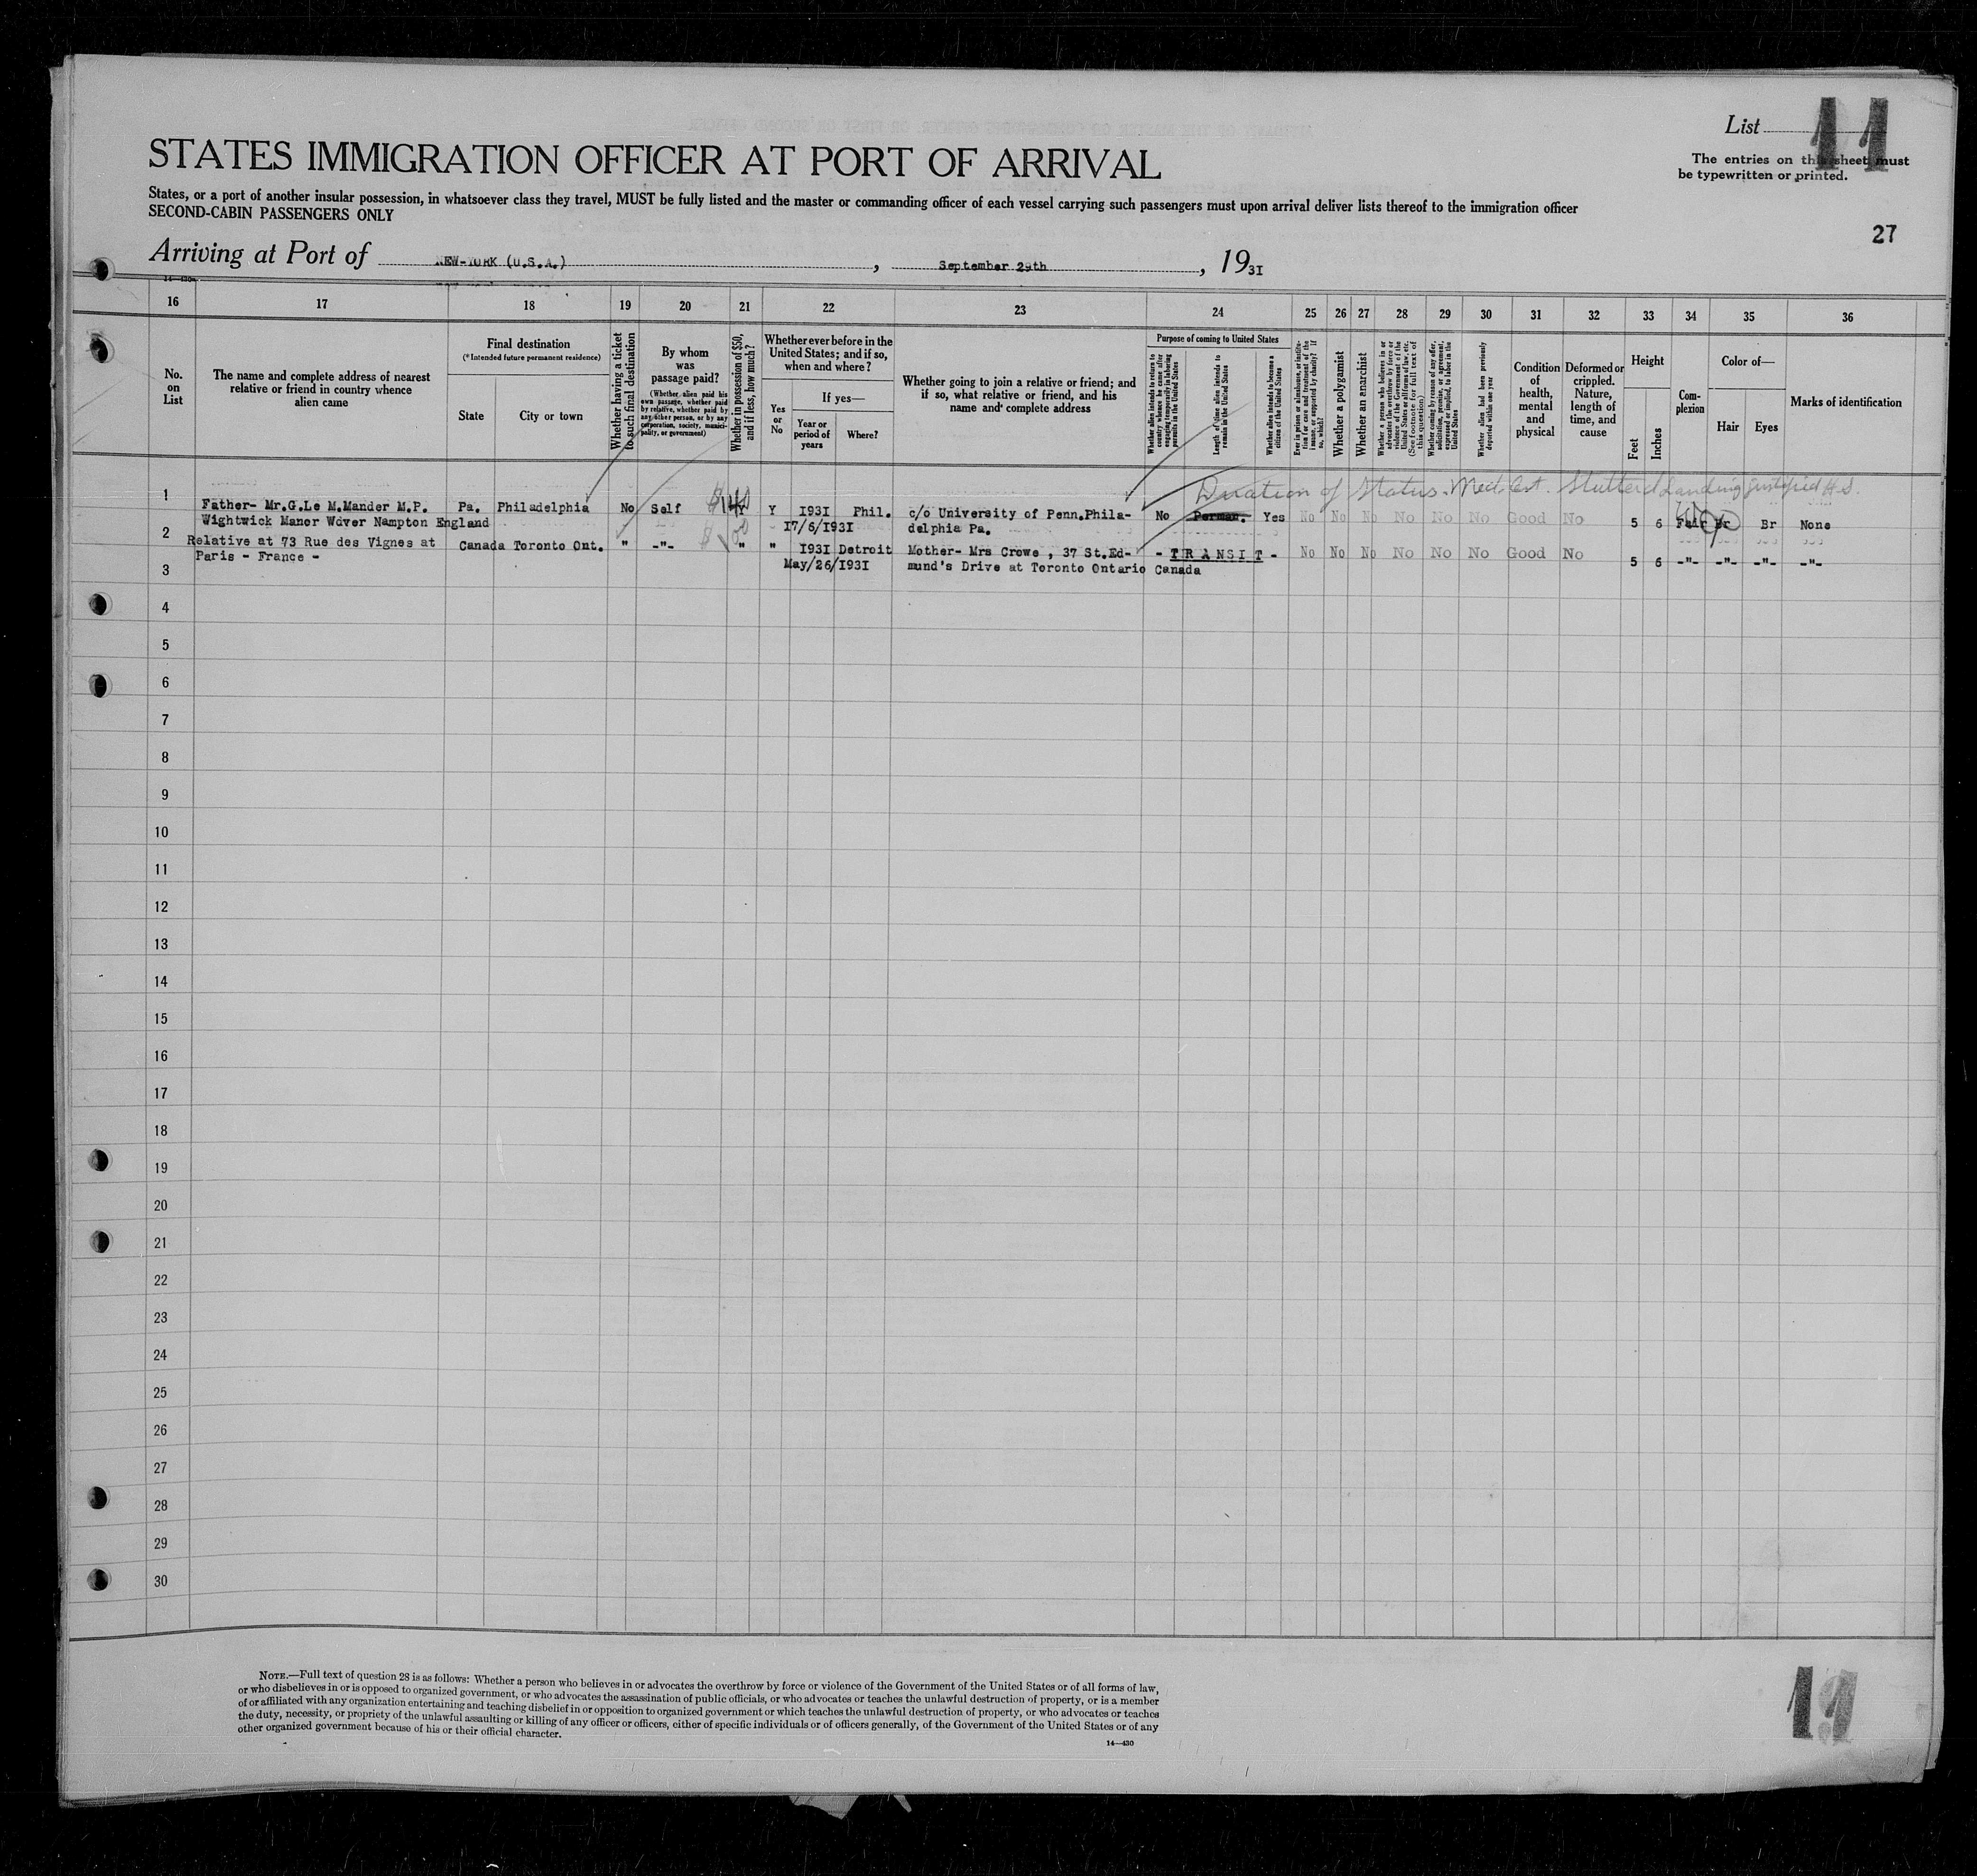 List 11
The entries on this sheet must
be typewritten or printed.
STATES IMMIGRATION OFFICER AT PORT OF ARRIVAL
States, or a port of another insular possession, in whatsoever class they travel, MUST be fully listed and the master or commanding officer of each vessel carrying such passengers must upon arrival deliver lists thereof to the immigration officer
SECOND-CABIN PASSENGERS ONLY
27
Arriving at Port of NEW-YORK (U.S.A.), September 29th, 1931
14-430
16 17 18 19 20 21 22 23 24 25 26 27 28 29 30 31 32 33 34 35 36
No.
on
List
The name and complete address of nearest
relative or friend in country whence
alien came
Final destination
(*Intended future permanent residence)
State
City or town
Whether having a ticket
to such final destination
By whom
was
passage paid?
(Whether alien paid his
own passage, whether paid
by relative, whether paid by
any other person, or by any
corporation, society, munici-
pality, or government)
Whether in possession of $50,
and if less, how much?
Whether ever before in the
United States; and if so,
when and where?
Yes
or
No
If yes—
Year or
period of
years
Where?
Whether going to join a relative or friend; and
if so, what relative or friend, and his
name and complete address
Purpose of coming to United States
Whether alien intends to return to
country whence he came after
engaging temporarily in laboring
pursuits in the United States
Length of time alien intends to
remain in the United States
Whether alien intends to become a
citizen of the United States
Ever in prison or almshouse, or institu-
tion for care and treatment of the
insane, or supported by charity? If
so, which?
Whether a polygamist
Whether an anarchist
Whether a person who believes in or
advocates the overthrow by force or
violence of the Government of the
United States or all forms of law, etc.
(See footnote for full text of
this question)
Whether coming by reason of any offer,
solicitation, promise, or agreement,
expressed or implied, to labor in the
United States
Whether alien had been previously
deported within one year
Condition
of
health,
mental
and
physical
Deformed or
crippled.
Nature,
length of
time, and
cause
Height
Feet
Inches
Com-
plexion
Color of—
Hair
Eyes
Marks of identification
Duation of Status. Med. Cert. Landing justified H.S.
1 Father- Mr.G.Le M.Mander M.P. Pa. Philadelphia No Self $140 Y Y I93I Phil. c/o University of Penn.Phila- No Perman. Yes No No No No No No Good No 5 6 Fair Br Br None
Wightwick Maner Wover Nampton England I7/6/I93I delphia Pa.
2 Relative at 73 Rue des Vignes at Canada Toronto Ont. " -"- " " I93I Detroit Mother- Mrs Crowe , 37 St.Ed- - TRANSIT - No No No No No No Good No 5 6 -"- -"- -"- -"-
Paris - France - May/26/I93I mund's Drive at Toronto Ontario Canada
3
4
5
6
7
8
9
10
11
12
13
14
15
16
17
18
19
20
21
22
23
24
25
26
27
28
29
30
NOTE.—Full text of question 28 is as follows: Whether a person who believes in or advocates the overthrow by force or violence of the Government of the United States or of all forms of law,
or who disbelieves in or is opposed to organized government, or who advocates the assassination of public officials, or who advocates or teaches the unlawful destruction of property, or is a member
of or affiliated with any organization entertaining and teaching disbelief in or opposition to organized government or which teaches the unlawful destruction of property, or who advocates or teaches
the duty, necessity, or propriety of the unlawful assaulting or killing of any officer or officers, either of specific individuals or of officers generally, of the Government of the United States or of any
other organized government because of his or their official character.
14—430
19